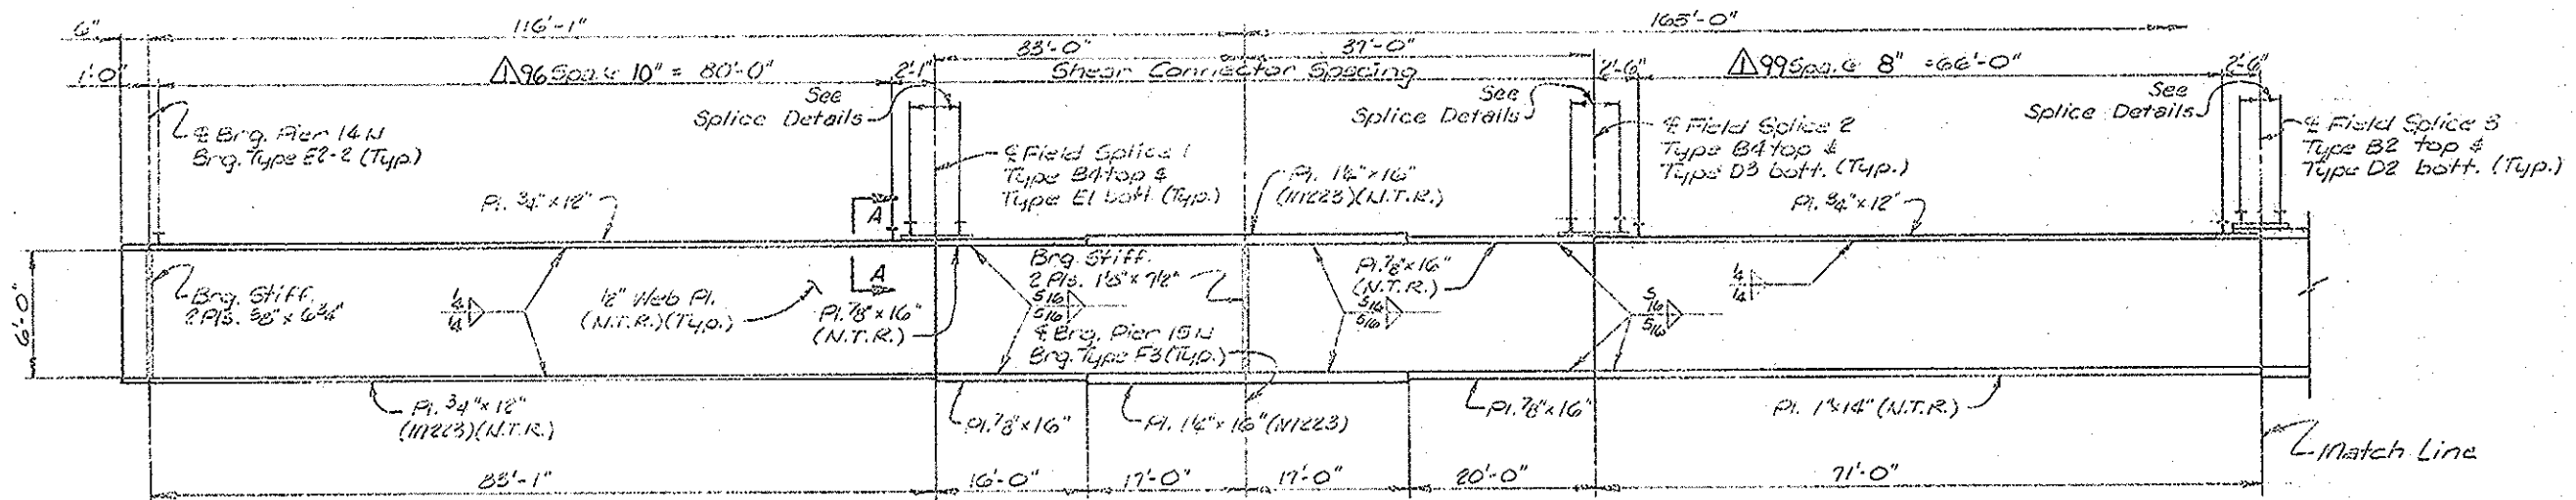 6"
116'-1"
165'-0"
33'-0"
37'-0"
1'-0"
96 Spa. @ 10" = 80'-0"
2'-1"
Shear Connector Spacing
2'-6"
99 Spa. @ 8" = 66'-0"
2'-6"
See
Splice Details
See
Splice Details
See
Splice Details
℄ Brg. Pier 14 N
Brg. Type E2-2 (Typ.)
℄ Field Splice 1
Type B4 top &
Type E1 bott. (Typ.)
Pl. 1¼" x 16"
(M223)(N.T.R.)
℄ Field Splice 2
Type B4 top &
Type D3 bott. (Typ.)
℄ Field Splice 3
Type B2 top &
Type D2 bott. (Typ.)
Pl. ¾" x 12"
A
Pl. ¾" x 12"
A
6'-0"
Brg. Stiff.
2 Pls. 6¾"
¼
¼
½" Web Pl.
(N.T.R.)(Typ.)
Pl. ⅞" x 16"
(N.T.R.)
Brg. Stiff.
2 Pls. x 7½"
5/16
5/16
℄ Brg. Pier 15 N
Brg. Type F3 (Typ.)
Pl. ⅞" x 16"
(N.T.R.)
5/16
5/16
5/16
5/16
¼
¼
Pl. ¾" x 12"
(M223)(N.T.R.)
Pl. ⅞" x 16"
Pl. 1¼" x 16" (M223)
Pl. ⅞" x 16"
Pl. 1" x 14" (N.T.R.)
Match Line
83'-1"
16'-0"
17'-0"
17'-0"
20'-0"
71'-0"